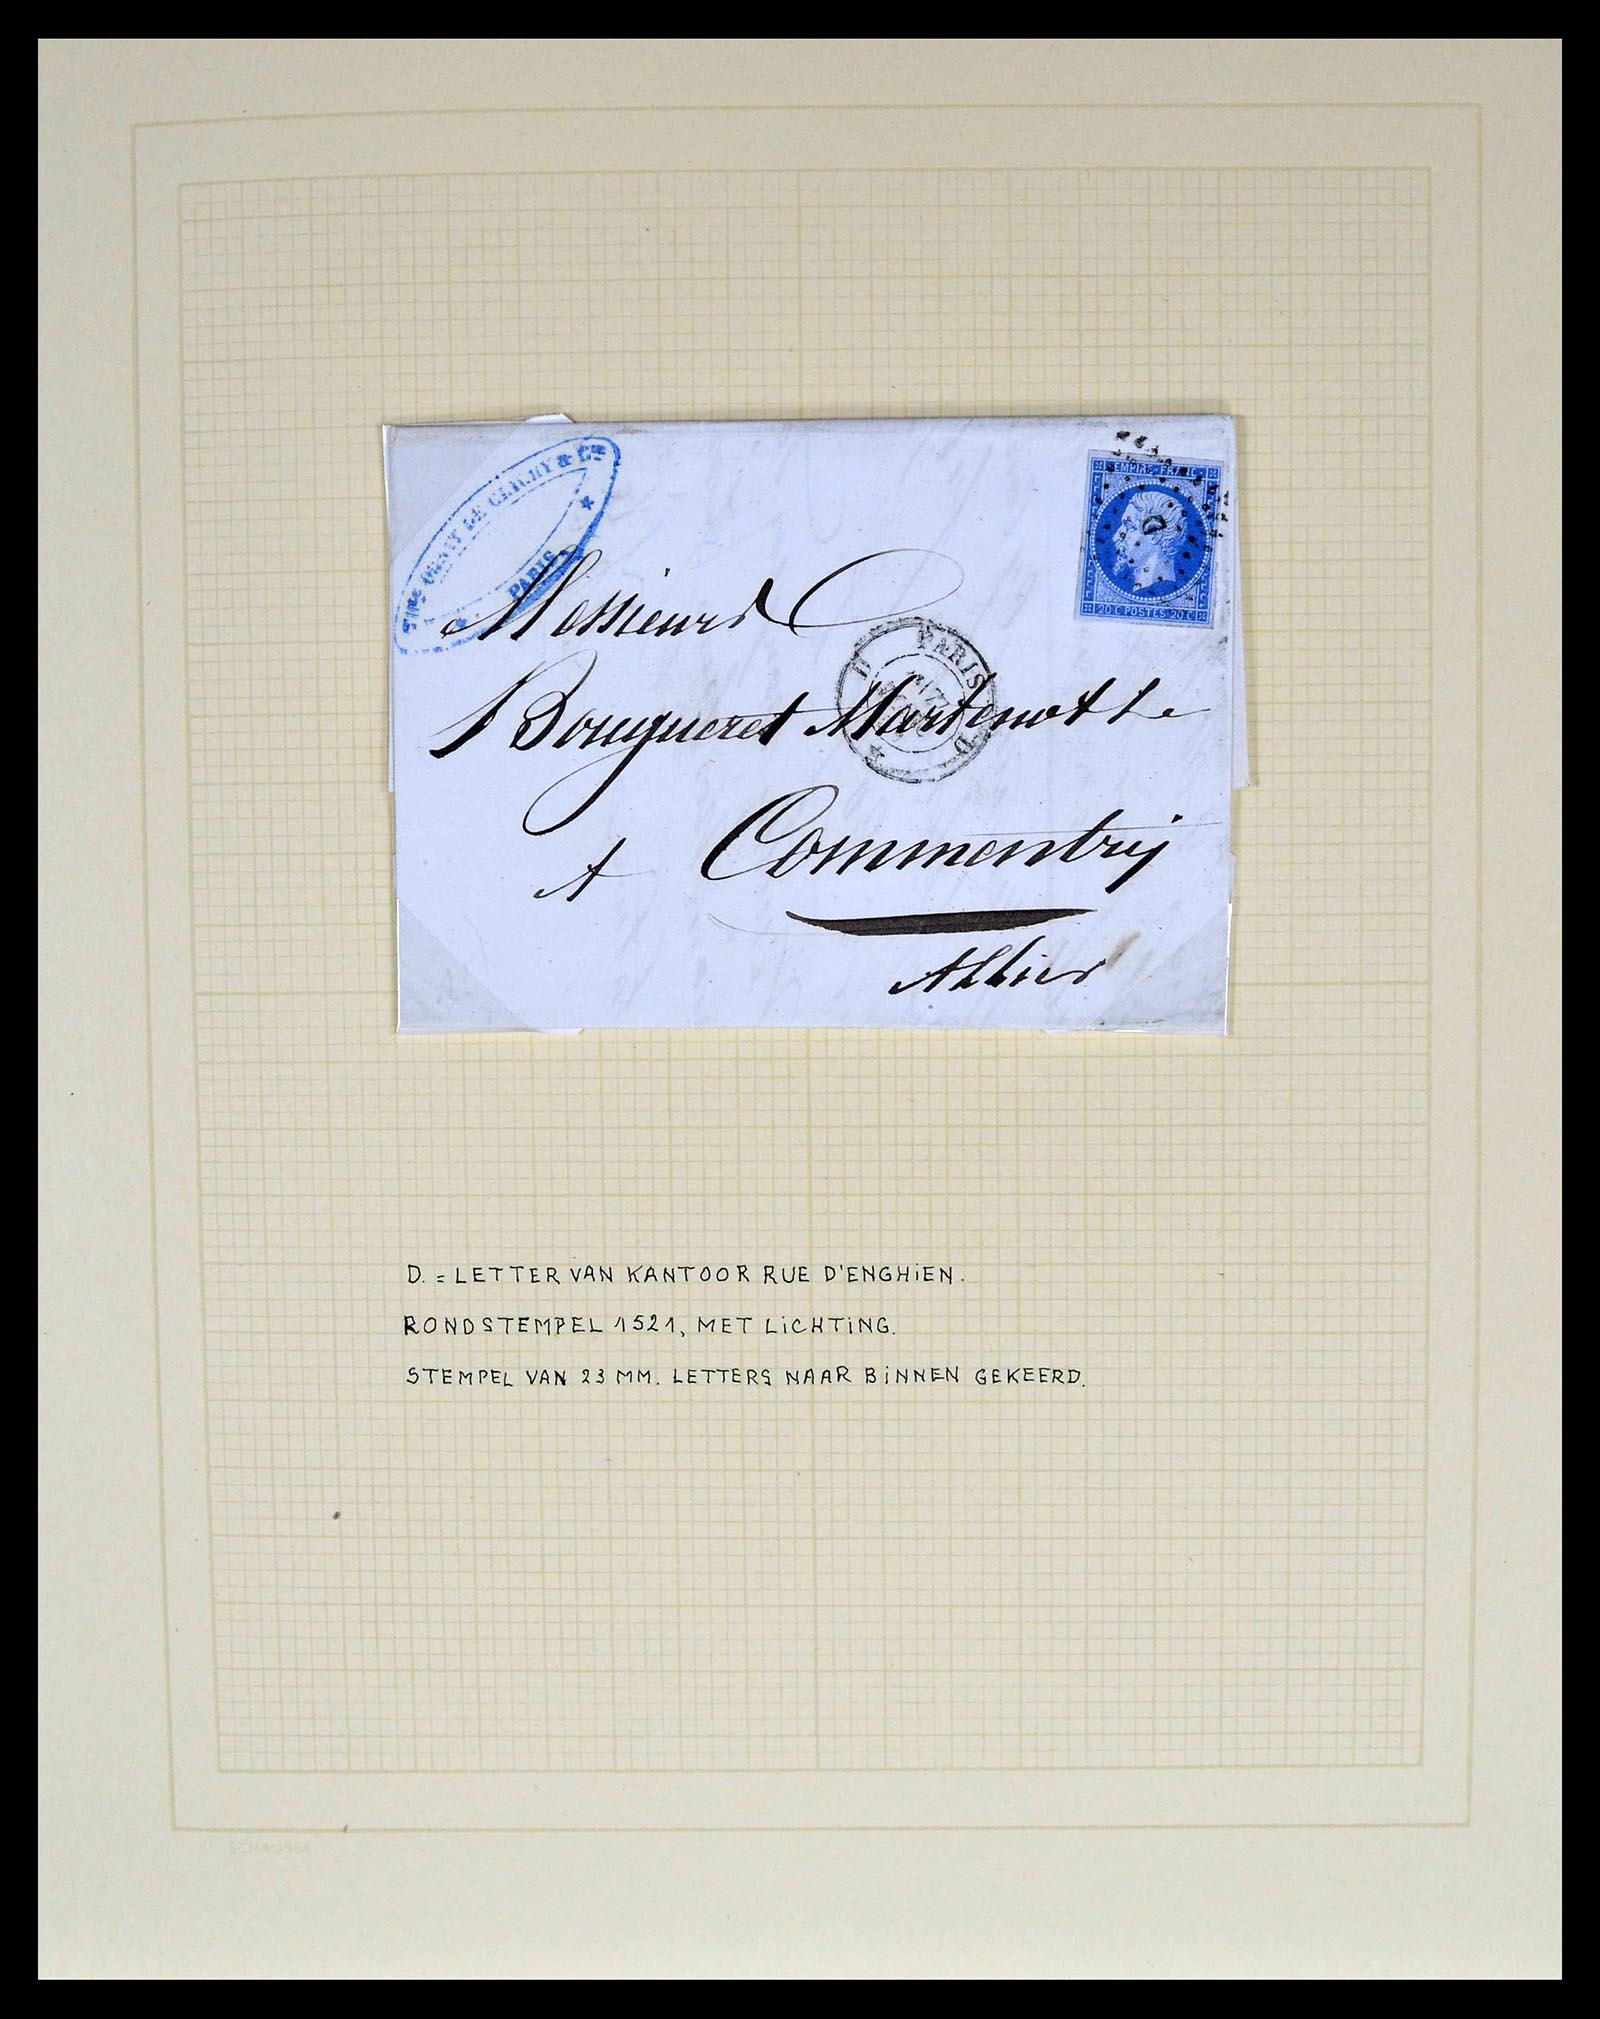 DE CLICHY & Cie
PARIS
EMPIRE FRANC
D
20 C POSTES 20 C
Messieurs
PARIS
D
Bougueret Martenot &
D
A Commentry
Allier
D. = LETTER VAN KANTOOR RUE D'ENGHiEN.
RONDSTEMPEL 1521, MET LiCHTiNG.
STEMPEL VAN 23 MM. LETTERS NAAR BiNNEN GEKEERD.
SCHAUBEK